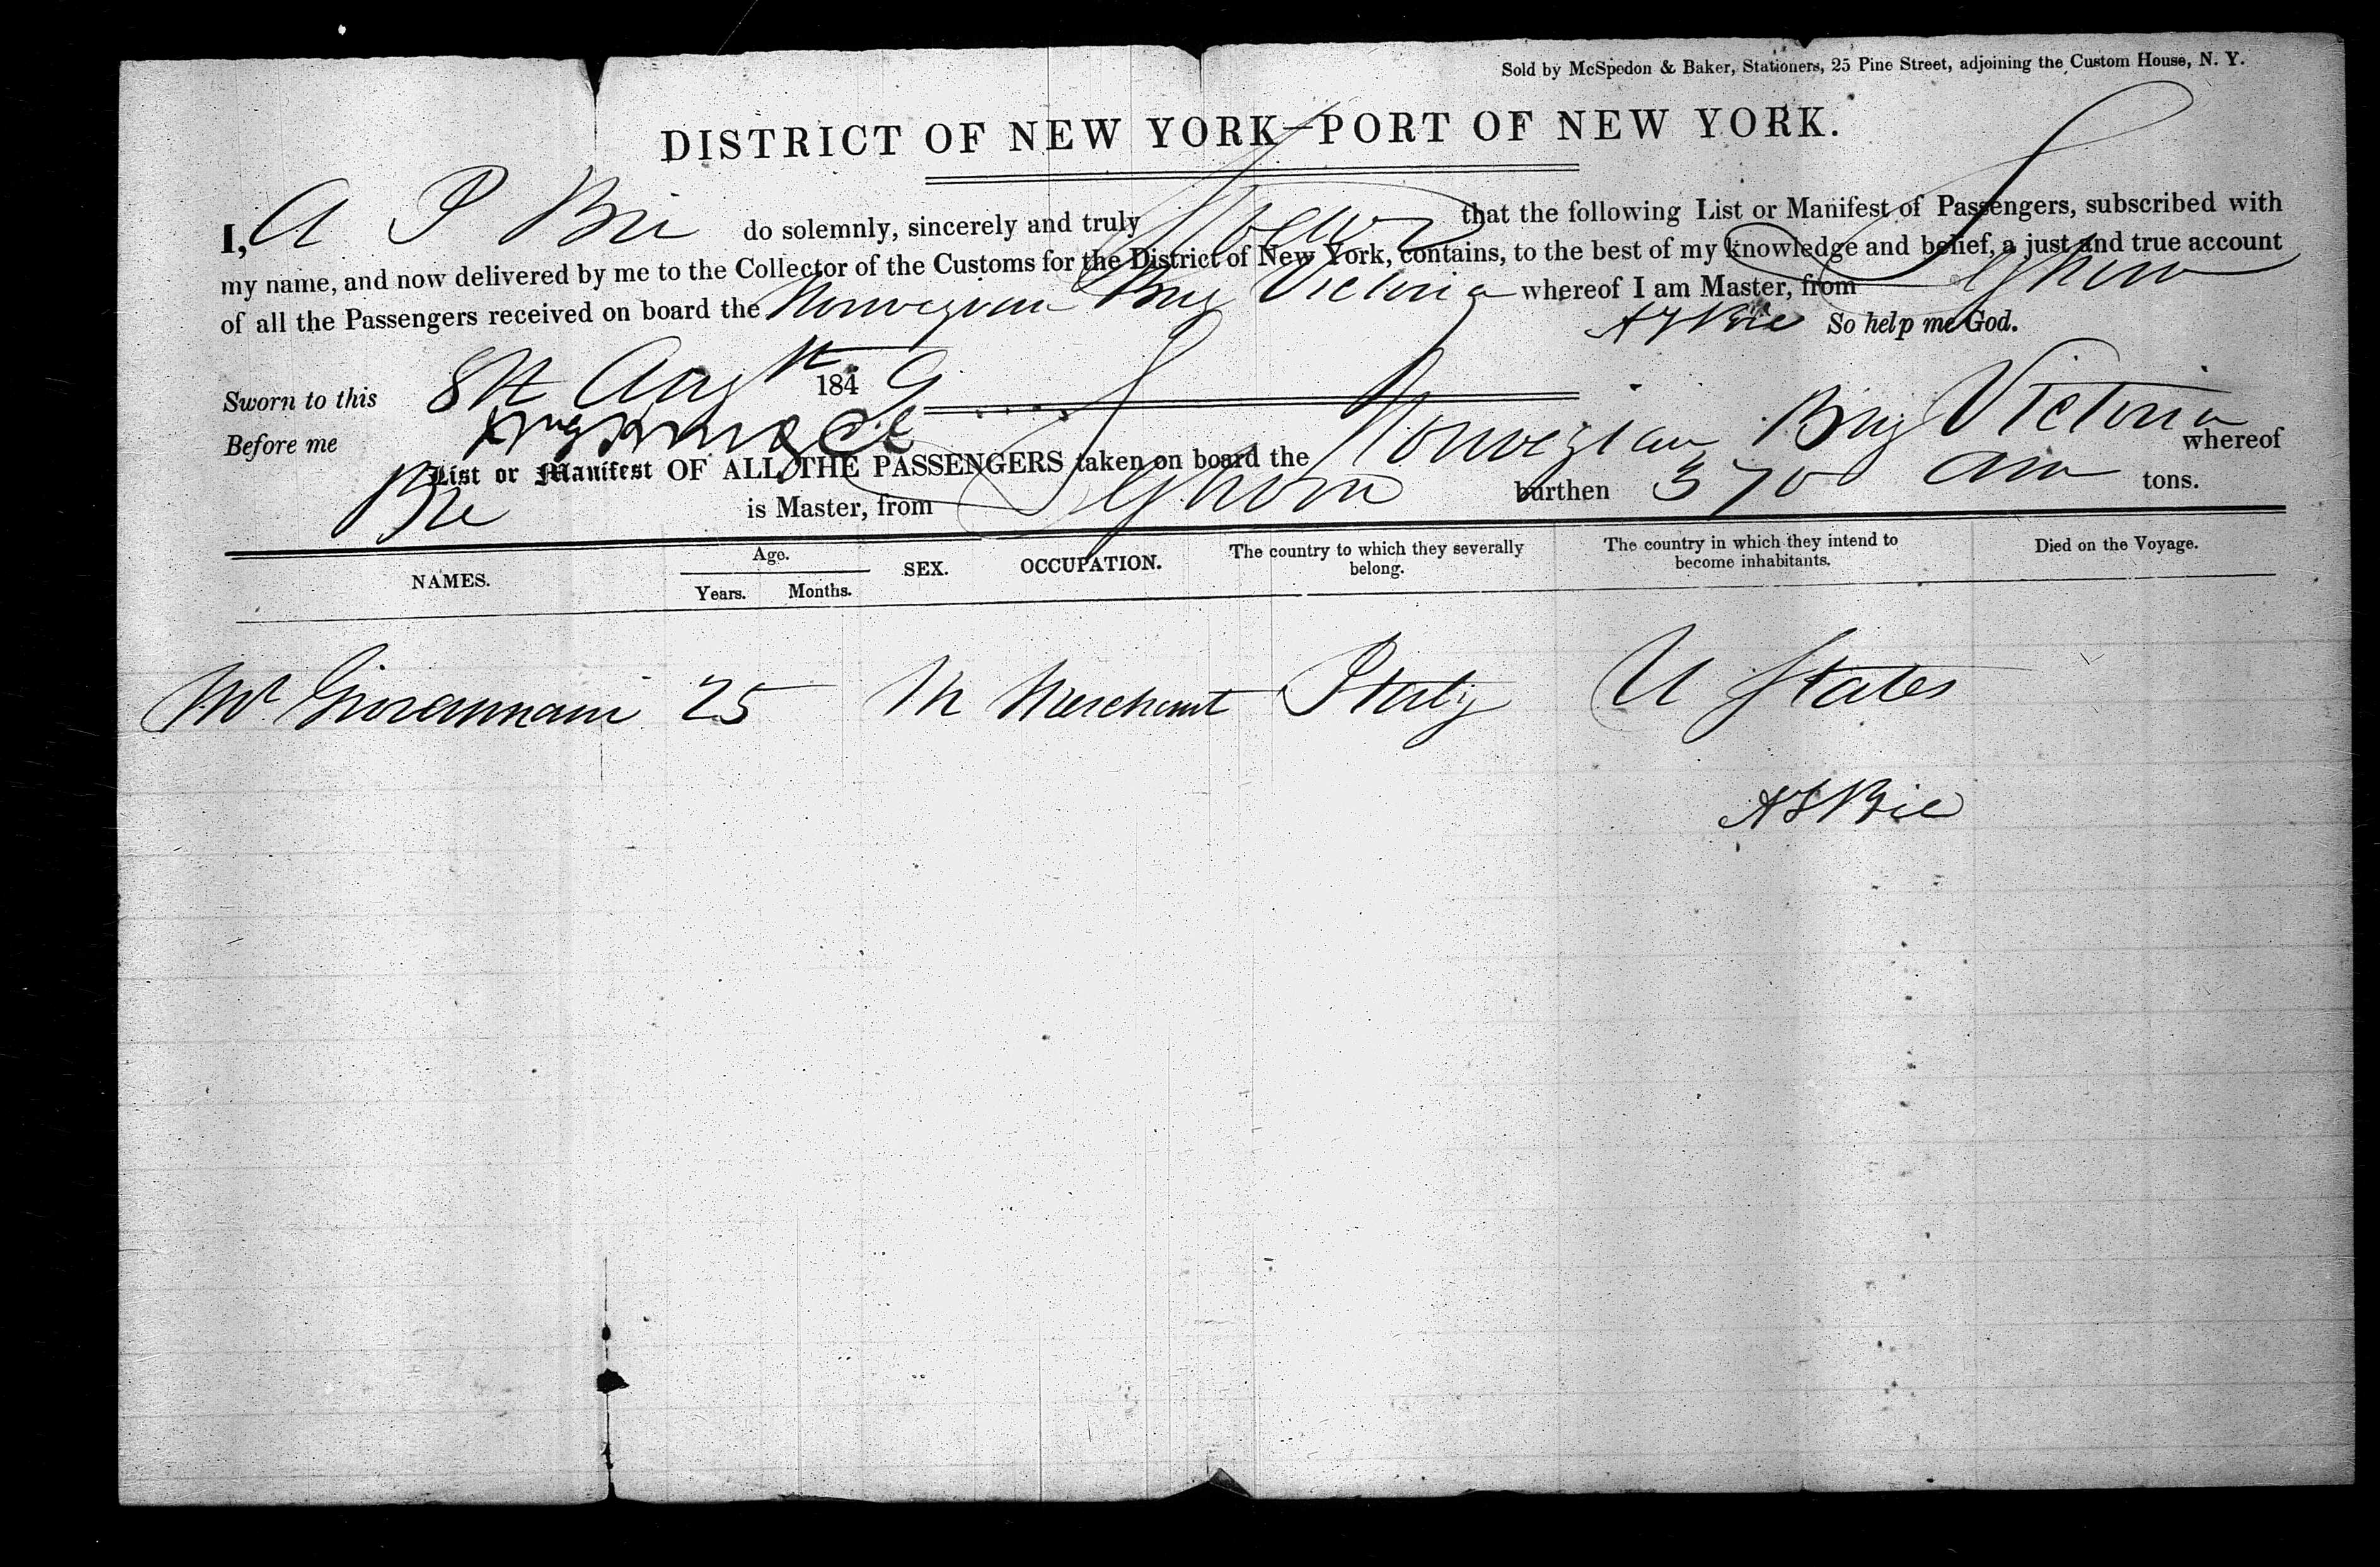 Sold by McSpedon & Baker, Stationers, 25 Pine Street, adjoining the Custom House, N. Y.
DISTRICT OF NEW YORK—PORT OF NEW YORK.
I, A Bie do solemnly, sincerely and truly Swear that the following List or Manifest of Passengers, subscribed with
my name, and now delivered by me to the Collector of the Customs for the District of New York, contains, to the best of my knowledge and belief, a just and true account
of all the Passengers received on board the Norwegian Brig Victoria whereof I am Master, from Leghorn
Bie So help me God.
Sworn to this 8th Augst 1849
Before me
List or Manifest OF ALL THE PASSENGERS taken on board the Norwegian Brig Victoria whereof
Bie is Master, from Leghorn burthen 370 tons.
NAMES. Age. Years. Months. SEX. OCCUPATION. The country to which they severally belong. The country in which they intend to become inhabitants. Died on the Voyage.
Mr Giovannani 25 M Merchant Italy U States
Bie